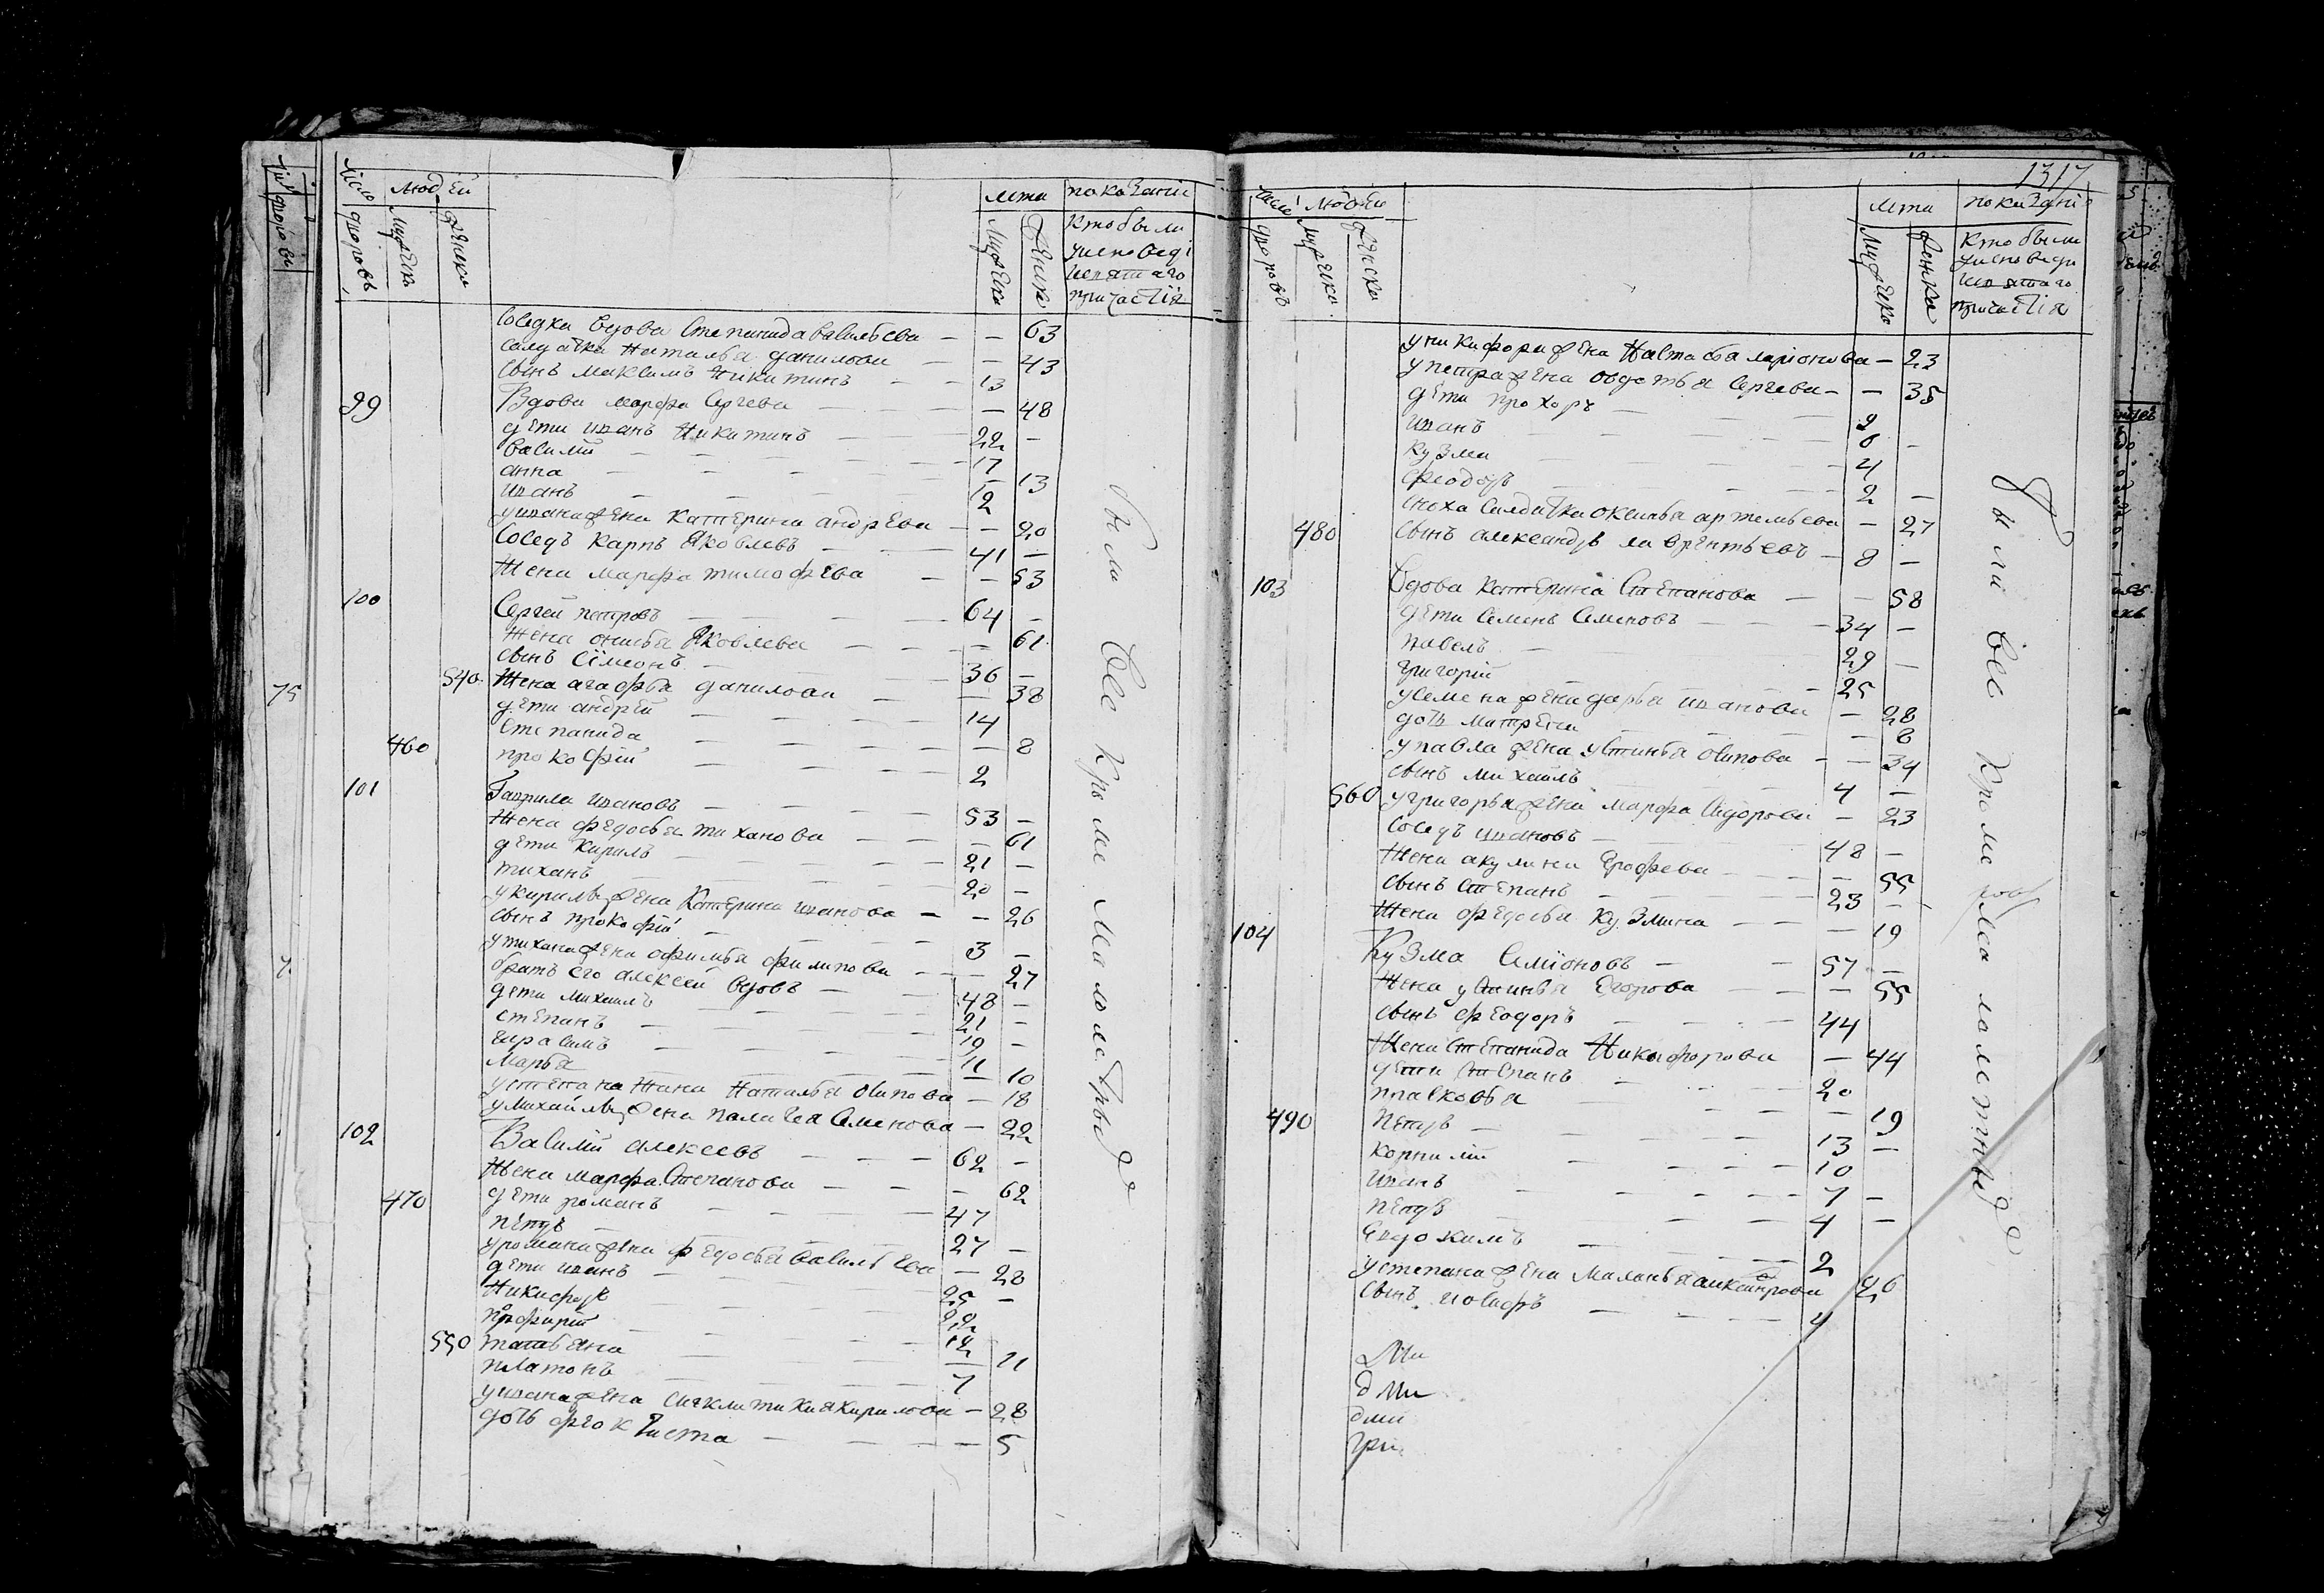 число дворовъ
людей
мужеска
женска
лета
показаніе
мужеска
женска
кто были
у исповеди
и святаго
причастїя
соседка вдова Степанида васильева — — 63
салдатка Наталья данилова — — 43
сынъ максимъ Никитинъ — — 13
99 Вдова марфа Сергева — — 48
дети иванъ Никитинъ — 22 —
василий — 17
анна — — 13
иванъ — 12
у ивана жена катерина андрева — — 20
Соседъ карпъ Яковлевъ — 41 —
Жена марфа тимофева — — 53
100 Сергей петровъ — 64 —
Жена Яковлева — — 61
сынъ Симеонъ — 36 —
540 Жена агафья данилова — — 38
дети андрей — 14
степанида — — 8
460 прокофий — 2
101 Гаврила ивановъ — 53 —
Жена федосья тиханова — — 61
дети кирилъ — 21 —
тиханъ — 20 —
у кирилы жена Катерина иванова — — 26
сынъ прокофий — 3 —
у тихана жена офимья филипова — — 27
братъ его алексей вдовъ — 48 —
дети михаилъ — 21 —
степанъ — 19 —
гирасимъ — 11
марья — — 10
у степана жина Наталья осипова — 18
у михайлы жена палагея Семенова — 22
102 Василий алексеевъ — 62 —
Жена марфа Степанова — — 62
470 дети романъ — 47
петръ — 27 —
у романа жена федосья васильева — 28
дети иванъ — 25 —
Никифоръ — 22
профирий — 12
550 татьяна — — 11
платонъ — 7
у ивана жена кирилова — 28
дочь феоктиста — — 5
были все кроме малолетныхъ
1317
число дворовъ
людей
мужеска
женска
лета
показаніе
мужеска
женска
кто были
у исповеди
и святаго
причастїя
у никифора жена Настасья ларионова — 23
у петра жена овдотья Сергева — — 35
дети прохоръ — 9
иванъ — 6 —
кузма — 4
феодоръ — 2 —
сноха Салдатка оксинья артемьева — 27
480 сынъ александръ лаврентьевъ — 8 —
103 Вдова катерина Степанова — — 58
дети Семенъ Семеновъ — 34 —
павелъ — 29 —
григорий — 25
у семена жена дарья иванова — 28
дочь матрена — — 8
у павла жена устинья осипова — — 34
сынъ михаилъ — 4 —
560 у григорья жена марфа Сидорова — 23
Соседъ ивановъ — 48 —
Жена акулина Ерофева — — 55
сынъ степанъ — 23 —
Жена федосья Кузмина — — 19
104 Кузма Семионовъ — 57 —
Жена устинья Егорова — — 55
сынъ феодоръ — 44
Жена степанида Никифорова — 44
дети степанъ — 20
праскофья — — 19
490 Петръ — 13 —
корнилий — 10
иванъ — 7 —
петръ — 4 —
Евдокимъ — 2
у степана жена маланья 26
сынъ иосифъ — 4
дми
дми
дми
гри
были все кроме малолетныхъ